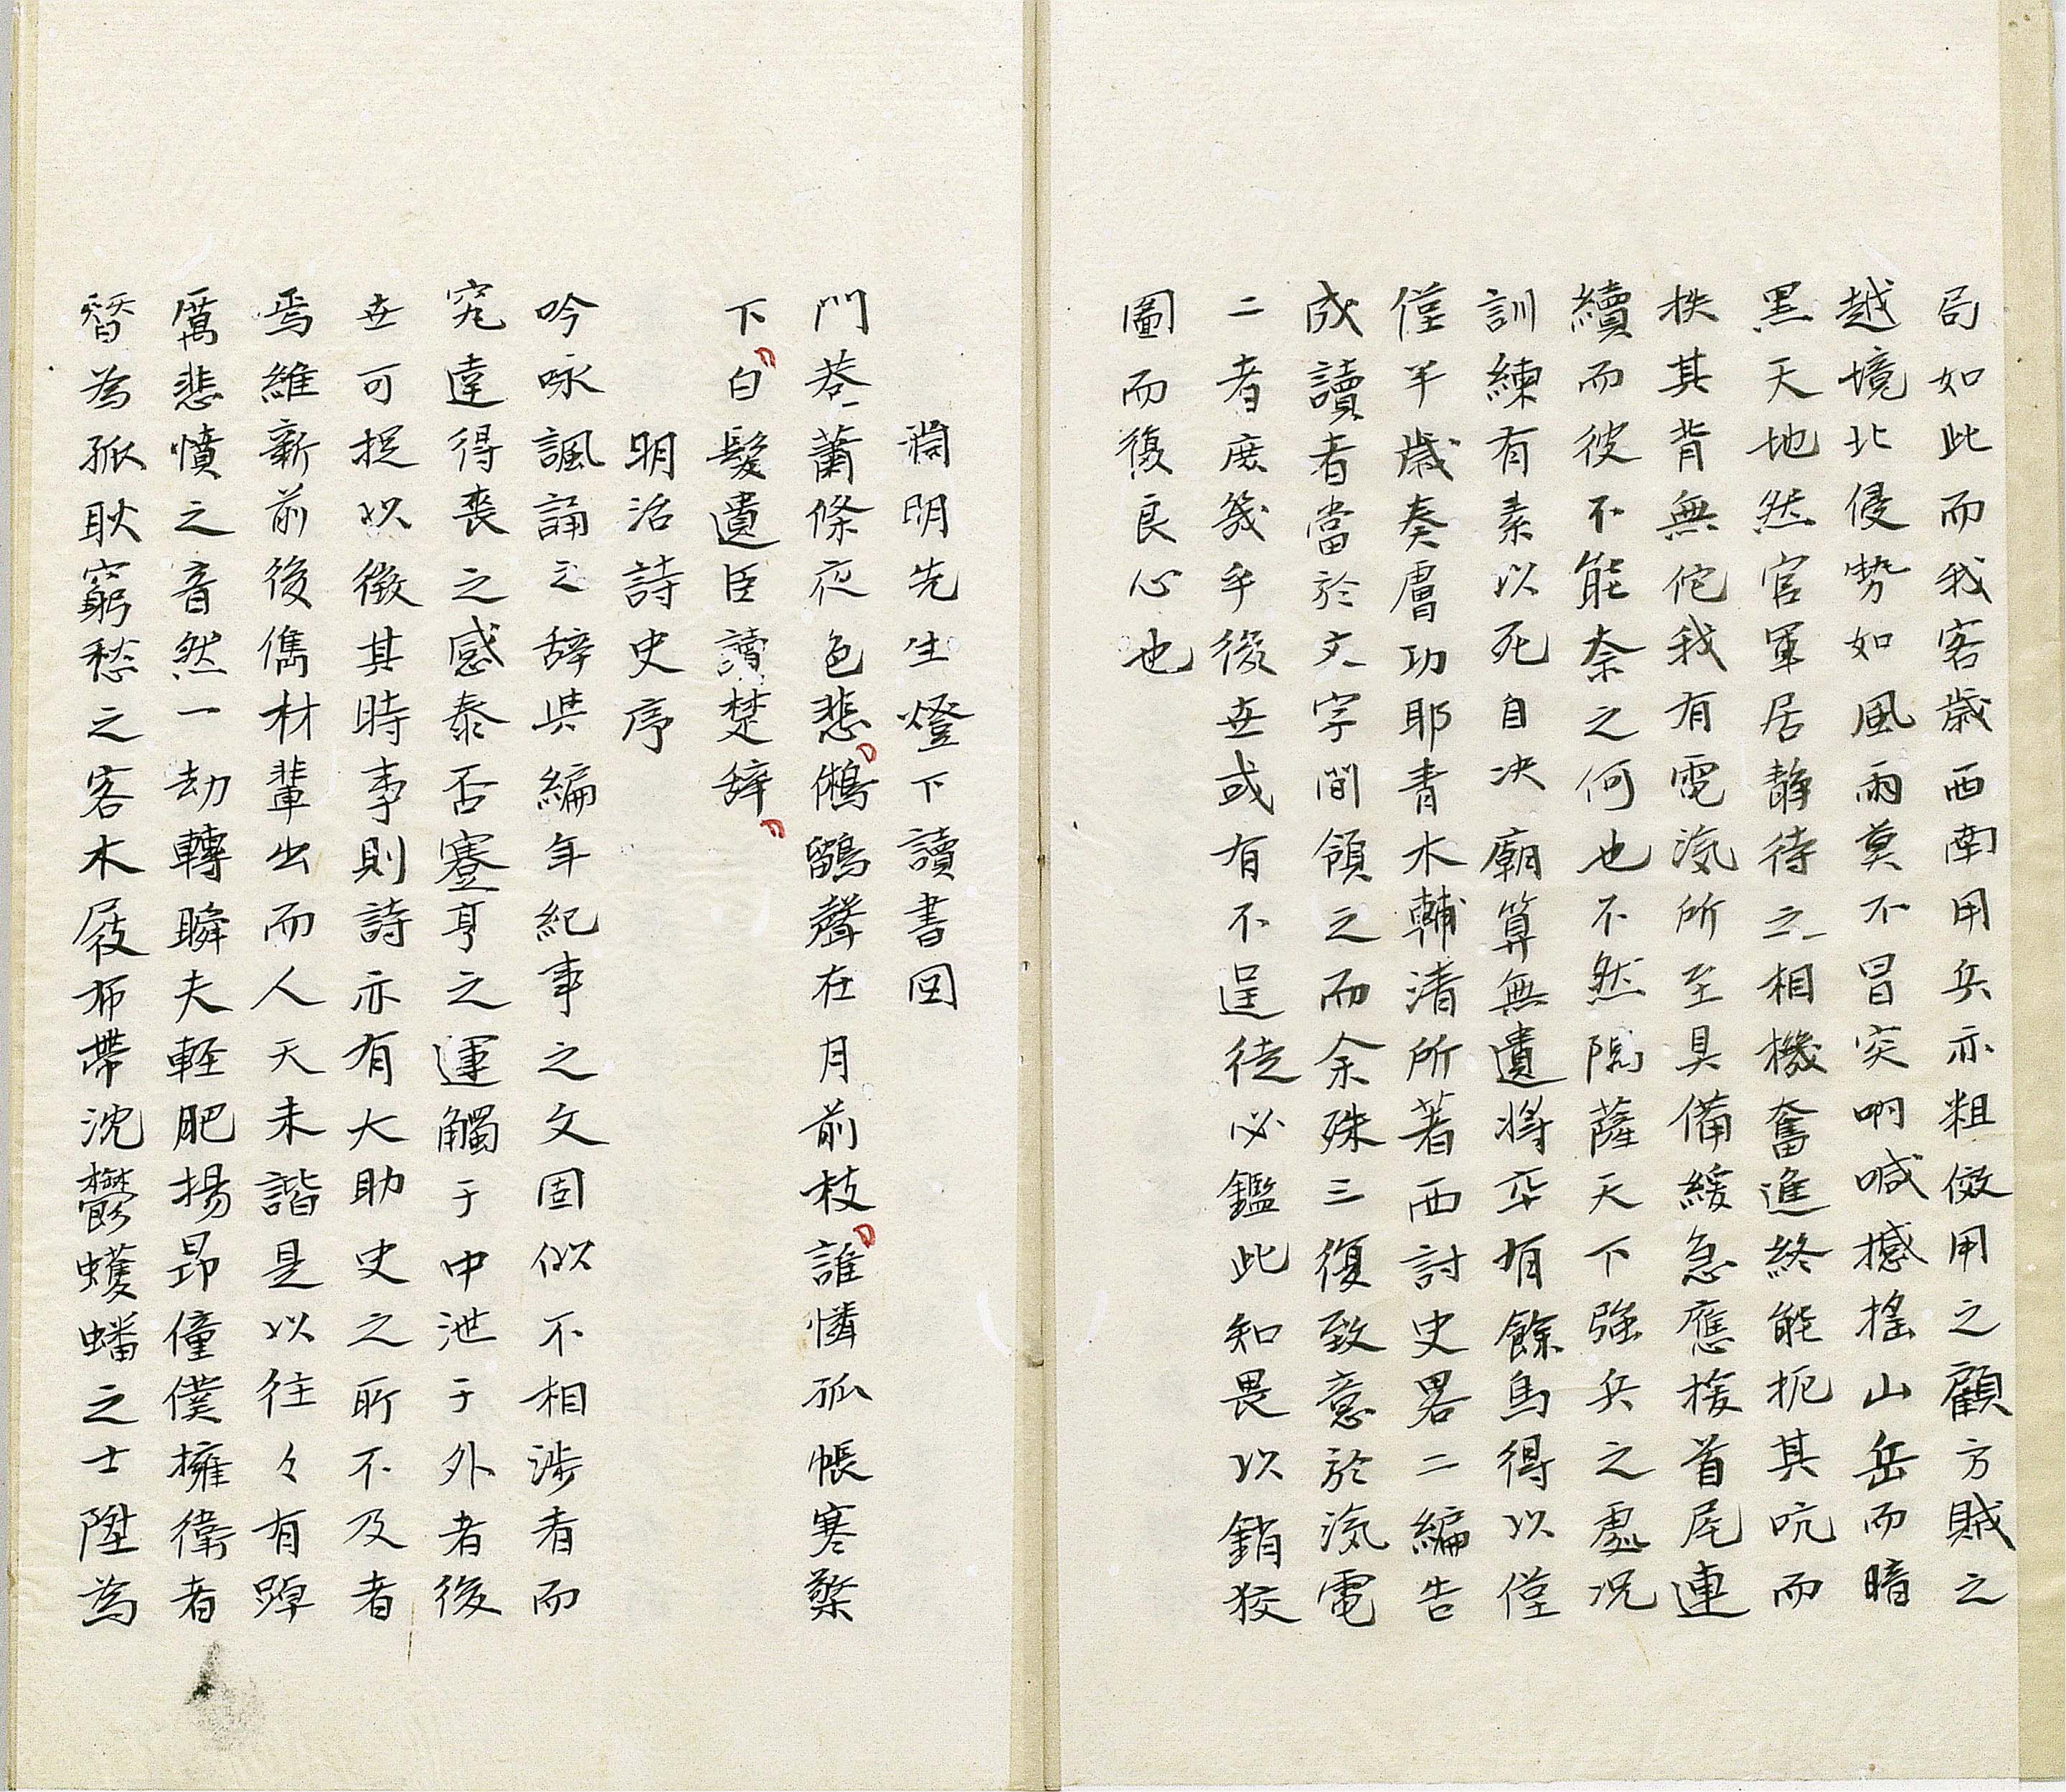 局如此而我客歳西南用兵亦粗倣用之顧方賊之
越境北侵勢如風雨莫不冒突吶喊撼搖山岳而暗
黑天地然官軍居静待之相機奮進終能扼其吭而
抶其背無佗我有電汽所至具備緩急應援首尾連
續而彼不能奈之何也不然隅薩天下強兵之處况
訓練有素以死自决廟算無遺将卒有餘馬得以僅
僅半歳奏膚功耶青木輔清所著西討史畧二編告
成讀者當於文字間領之而余殊三復致意於汽電
二者庶幾乎後世或有不逞徒必鑑此知畏以銷狡
圖而復良心也
淵明先生燈下讀書図
門巷蕭條夜色悲鵂鶹聲在月前枝誰憐孤帳寒檠
下白髮遺臣讀楚辞
明治詩史序
吟咏諷誦之辞與編年紀事之文固似不相渉者而
窮達得喪之感泰否蹇亨之運觸于中泄于外者後
世可捉以徴其時事則詩亦有大助史之所不及者
焉維新前後儁材輩出而人天未諧是以往々有踔
厲悲憤之音然一劫轉瞬夫軽肥揚昂僮僕擁衛者
朁為孤耿窮愁之客木屐布帶沈鬱蠖蟠之士陞為